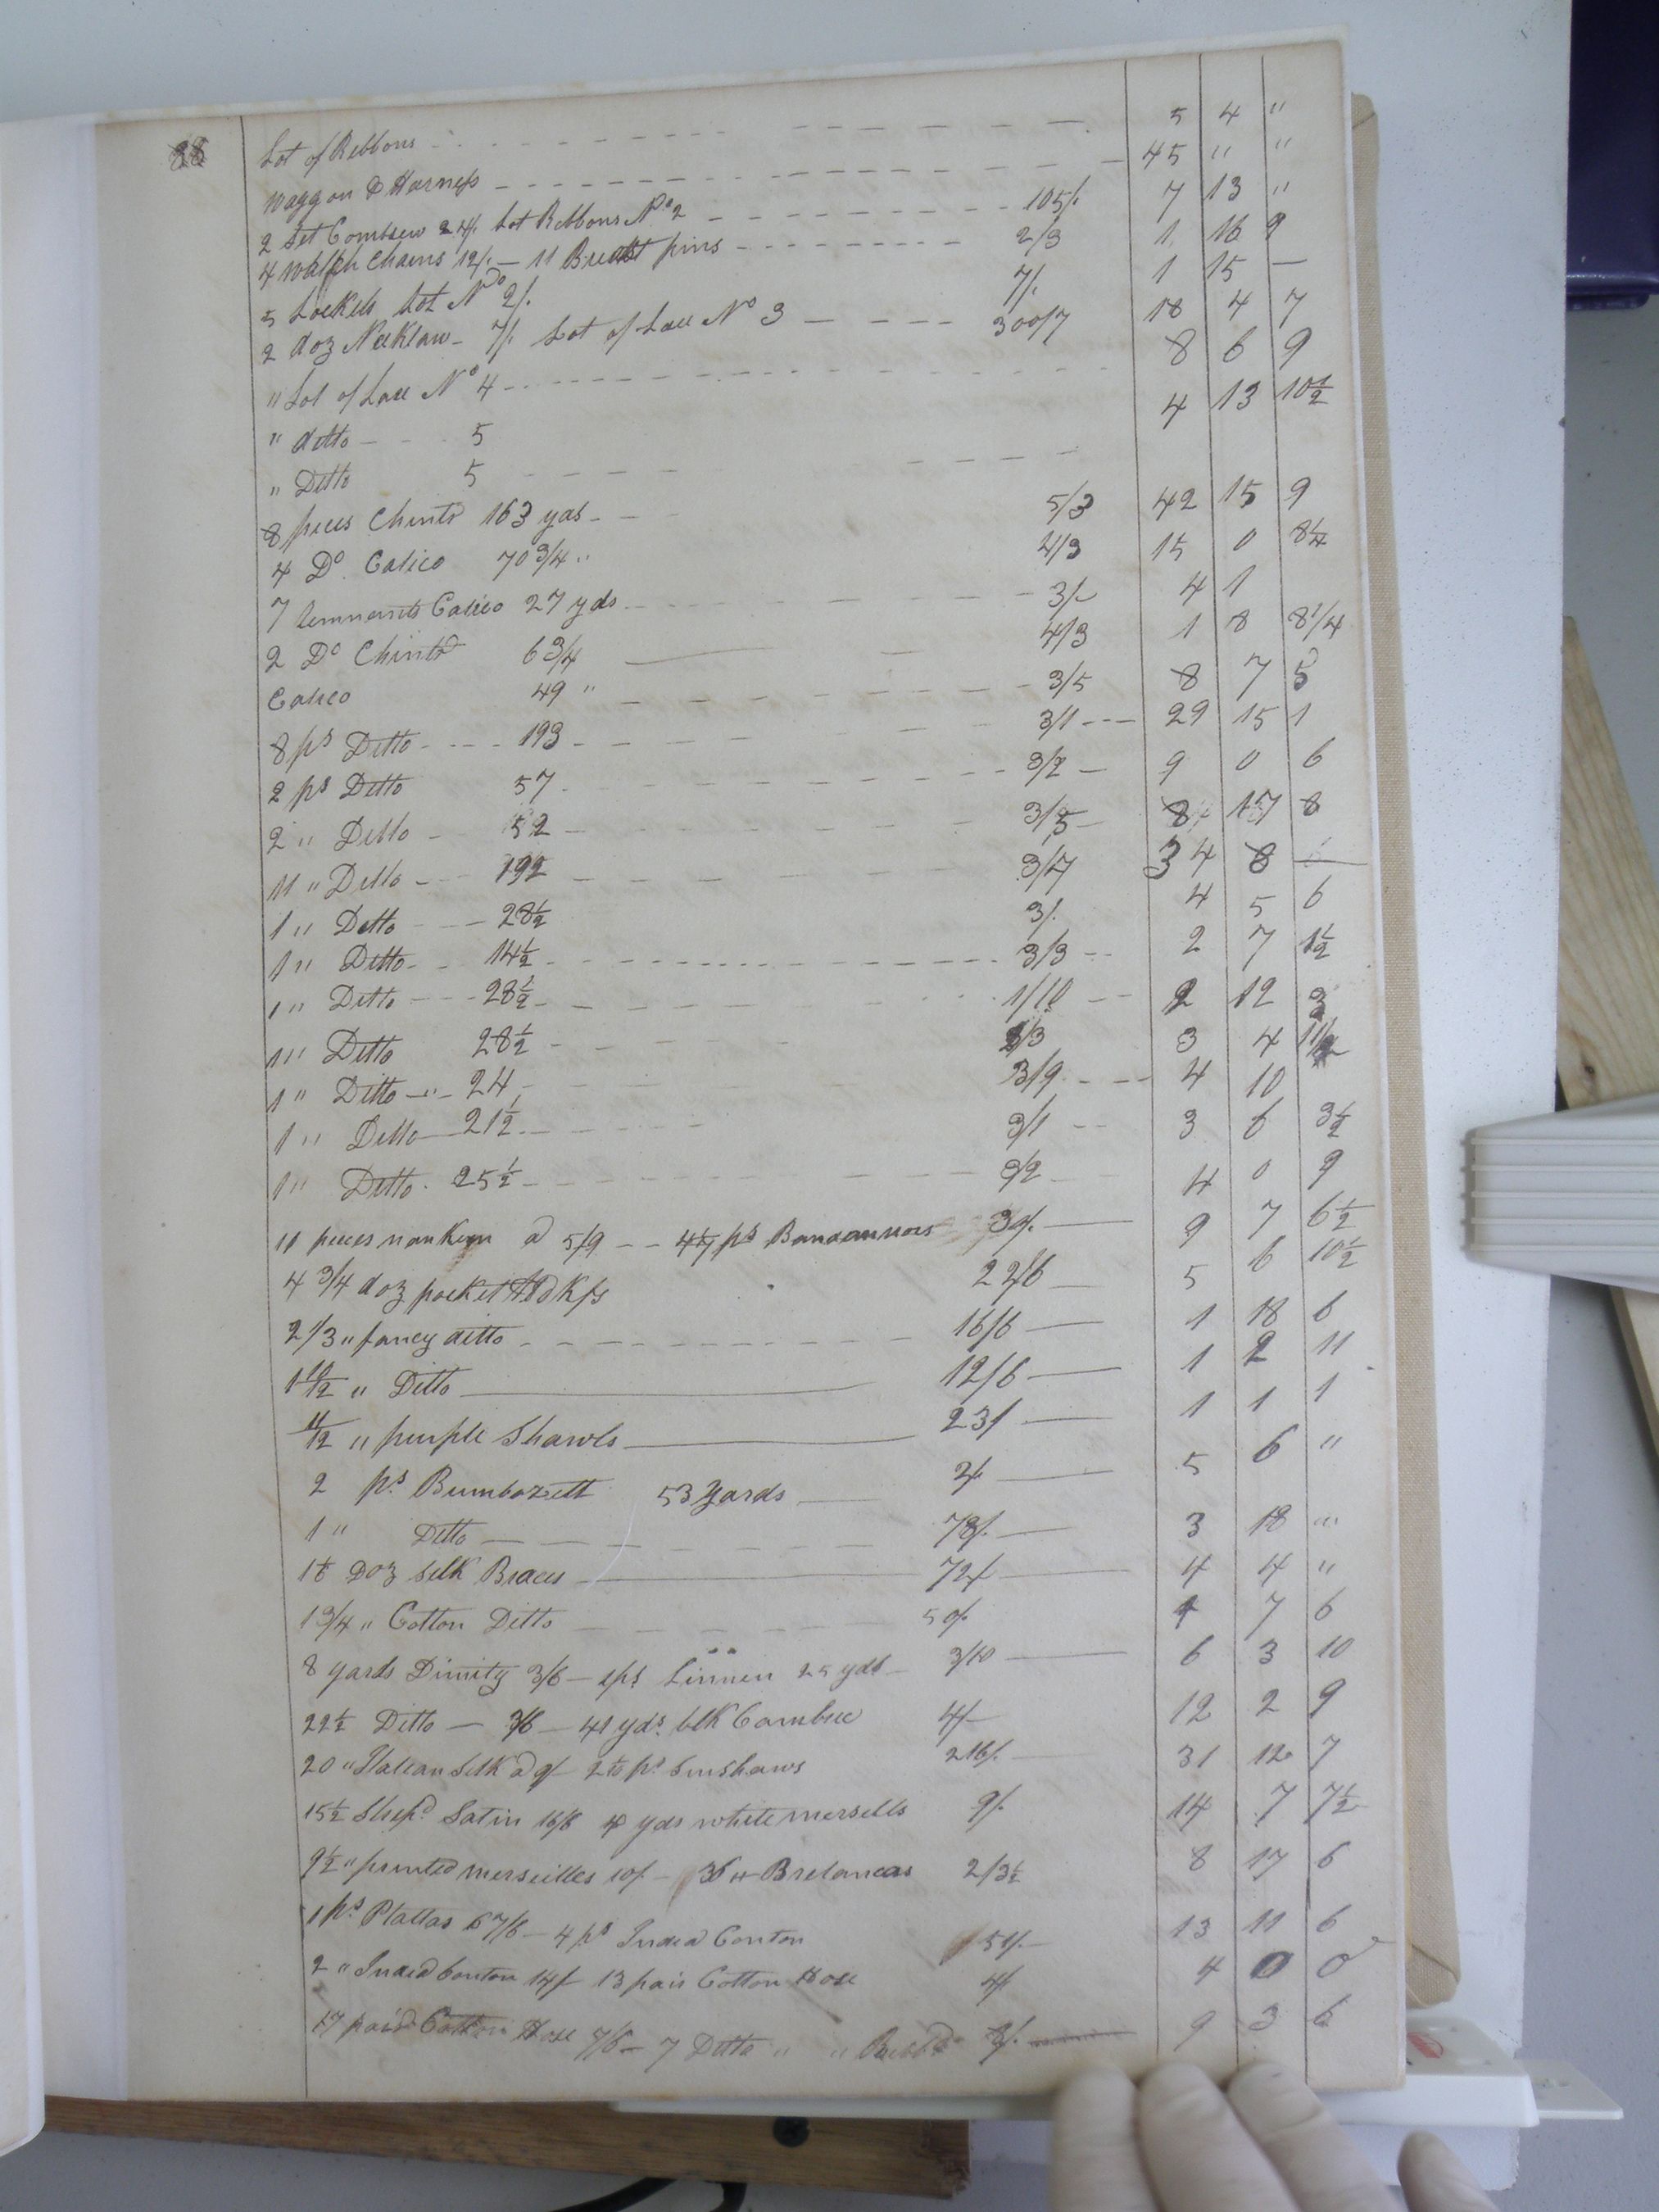 88
Lot of Ribbons 5 4 "
Waggon & Harness 45 " "
2 Set Combsew 24/. Lot Ribbons No 2 105/. 7 13 "
4 Watch Chains 12/. — 11 Breast pins 2/3 1 16 9
5 Lockets Lot No 2/. 7/. 1 15 —
2 doz Necklaw 7/. Lot of Lace No 3 300/7 18 4 7
" Lot of Lace No 4 8 6 9
" ditto 5 4 13 10½
" Ditto 5
8 pieces Chints 163 yds 5/3 42 15 9
4 Do Calico 70 3/4 " 4/3 15 0 8¼
7 Remnants Calico 27 yds 3/- 4 1
2 Do Chints 6 3/4 4/3 1 8 8 1/4
Calico 49 " 3/5 8 7 5
8 ps Ditto 193 3/1 29 15 1
2 ps Ditto 57 3/2 9 0 6
2 " Ditto 52 3/5 8 17 8
11 " Ditto 192 3/7 34 8 —
1 " Ditto 28½ 3/. 4 5 6
1 " Ditto 14½ 3/3 2 7 1½
1 " Ditto 28½ 1/10 2 12 3
1 " Ditto 28½ 2/3 3 4 1½
1 " Ditto " 24 3/9 4 10
1 " Ditto 21½ 3/1 3 6 3½
1 " Ditto 25½ 3/2 4 0 9
11 pieces nankeen @ 5/9 — ps Bandannoes 30/. 9 7 6½
4 3/4 doz pocket HdKfs 22/6 5 6 10½
2 1/3 " fancy ditto 16/6 1 18 6
1 10/12 " Ditto 12/6 1 2 11
11/12 " purple Shawls 23/ 1 1 1
2 ps Bumbozett 53 Yards 2/ 5 6 "
1 " Ditto 78/. 3 18 "
Doz Silk Braces 72/ 4 4 "
1 3/4 " Cotton Ditto 50/. 4 7 6
8 yards Dimity 3/6 — 1 ps Linnen 25 yds 3/10 6 3 10
22½ Ditto — 3/6 — 41 yds blk Cambric 4/- 12 2 9
20 " Italian Silk @ 9/ ps Sinshaws 216/. 31 12 7
15½ Shepd Satin 16/6 4 yds white mersells 9/. 14 7 7½
9½ " printed merseilles 10/ — 36 " Bretaneas 2/3½ 8 17 6
1 ps Plattas 67/6 — 4 ps India Conton 51/. 13 11 6
2 " India Conton 14/ 13 pair Cotton Hose 4/ 4 0 0
17 pair Cotton Hose 7/6 — 7 Ditto " " 9 3 6